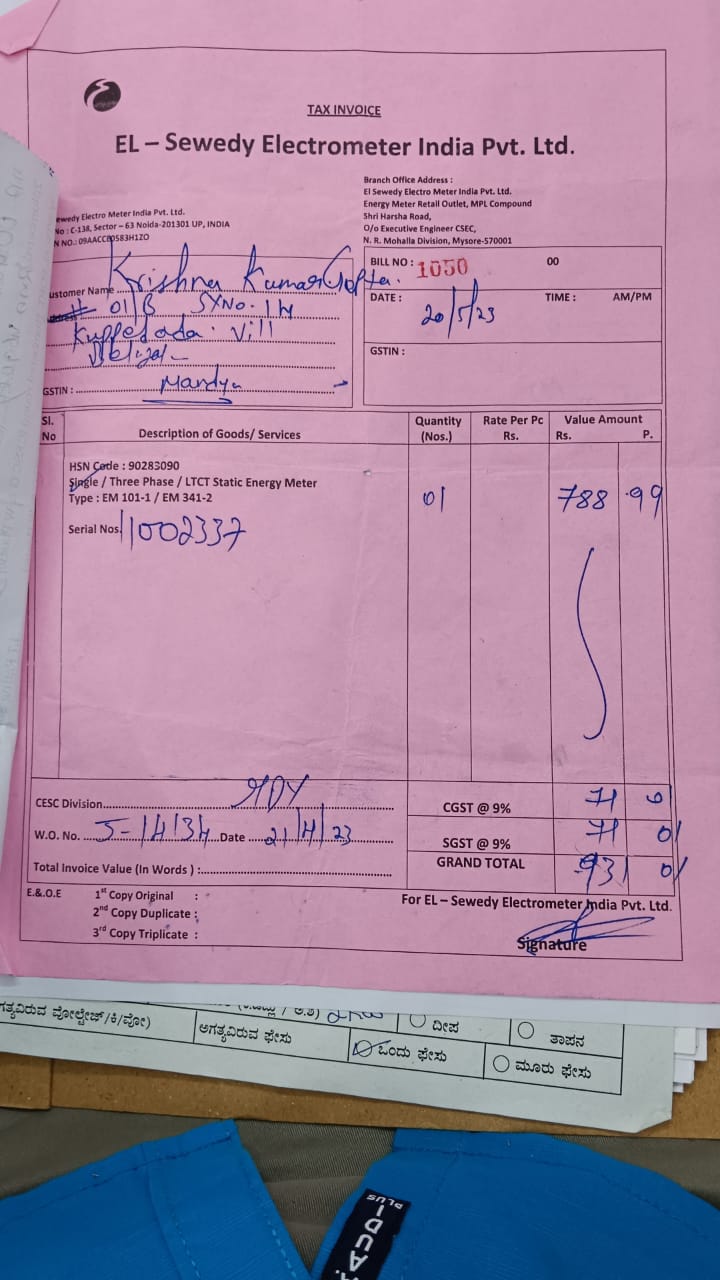 TAX INVOICE
EL – Sewedy Electrometer India Pvt. Ltd.
ewedy Electro Meter India Pvt. Ltd.
No : C-138, Sector – 63 Noida-201301 UP, INDIA
N NO.: 09AACCE0583H1ZO
Branch Office Address :
El Sewedy Electro Meter India Pvt. Ltd.
Energy Meter Retail Outlet, MPL Compound
Shri Harsha Road,
O/o Executive Engineer CSEC,
N. R. Mohalla Division, Mysore-570001
ustomer Name Krishna Kumar Gofta.
# 01/B SYNo. 14
Vill
GSTIN : Mandya
BILL NO : 1050 00
DATE : 20/5/23 TIME : AM/PM
GSTIN :
Sl. No Description of Goods/ Services Quantity (Nos.) Rate Per Pc Rs. Value Amount Rs. P.
HSN Code : 90283090
Single / Three Phase / LTCT Static Energy Meter
Type : EM 101-1 / EM 341-2
01 788 .99
Serial Nos. 11002337
CESC Division MDY
CGST @ 9% 71 01
W.O. No. 5-14134 Date 21/4/23
SGST @ 9% 71 01
GRAND TOTAL 931 01
Total Invoice Value (In Words ) :
E.& O.E 1st Copy Original :
2nd Copy Duplicate :
3rd Copy Triplicate :
For EL – Sewedy Electrometer India Pvt. Ltd.
Signature
ಗತ್ಯವಿರುವ ವೋಲ್ಟೇಜ್/ಕಿ/ವೋ)
ಅಗತ್ಯವಿರುವ ಫೇಸು
ದೀಪ
ತಾಪನ
ಒಂದು ಫೇಸು
ಮೂರು ಫೇಸು
PLUS